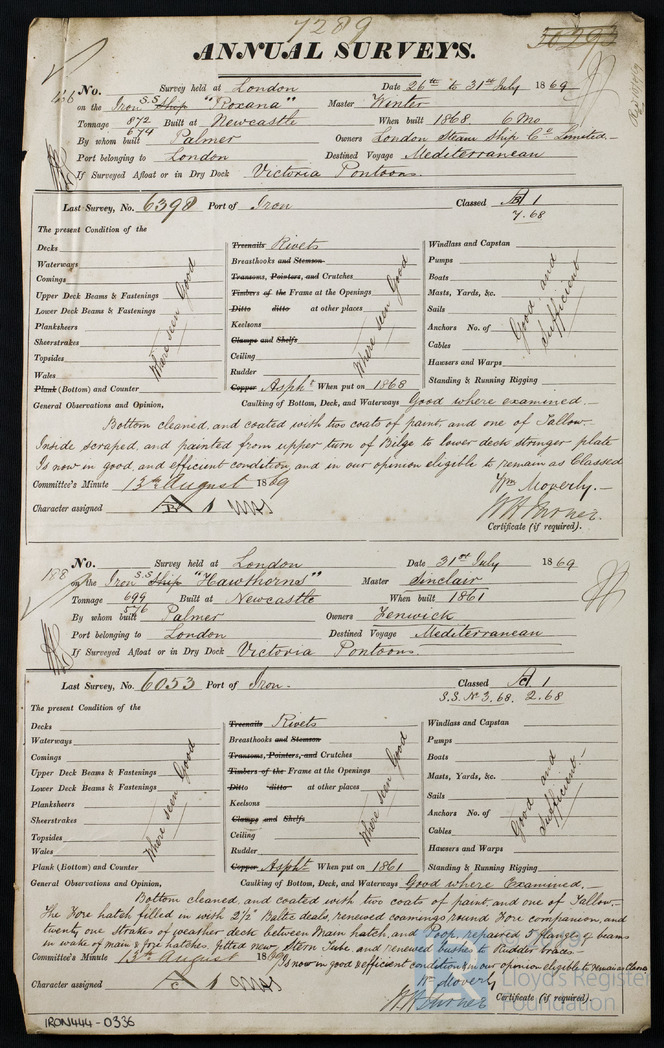 7289
ANNUAL SURVEYS.
466 No. Survey held at London Date 26th to 31st July 1869
on the Iron S.S Ship "Roxana" Master Wenter
Tonnage 872 Built at Newcastle When built 1868 6 Mo
674
By whom built Palmer Owners London Steam Ship Co. Limited.
Port belonging to London Destined Voyage Mediterranean
If Surveyed Afloat or in Dry Dock Victoria Pontoons.
Last Survey, No. 6398 Port of Iron Classed A 1
7.68
The present Condition of the
Decks
Waterways
Comings
Upper Deck Beams & Fastenings
Lower Deck Beams & Fastenings
Planksheers
Sheerstrakes
Topsides
Wales
Plank (Bottom) and Counter
Where seen Good
Treenails Rivets
Breasthooks and Stemson
Transoms, Pointers, and Crutches
Timbers of the Frame at the Openings
Ditto ditto at other places
Keelsons
Clamps and Shelfs
Ceiling
Rudder
Copper Aspht When put on 1868
Where seen Good
Windlass and Capstan
Pumps
Boats
Masts, Yards, &c.
Sails
Anchors No. of
Cables
Hawsers and Warps
Standing & Running Rigging
Good and sufficient
General Observations and Opinion, Caulking of Bottom, Deck, and Waterways Good where examined.
Bottom cleaned, and coated with two coats of paint, and one of Tallow.
Inside scraped, and painted from upper turn of Bilge to lower deck stringer plate
Is now in good, and efficient condition, and in our opinion eligible to remain as Classed
Committee's Minute 13th August 1869 Wm Moverly.
Character assigned A 1
Certificate (if required).
188 No. Survey held at London Date 31st July 1869
on the Iron S.S Ship "Hawthorns" Master Sinclair
Tonnage 699 Built at Newcastle When built 1861
576
By whom built Palmer Owners Fenwick
Port belonging to London Destined Voyage Mediterranean
If Surveyed Afloat or in Dry Dock Victoria Pontoons.
Last Survey, No. 6053 Port of Iron. Classed A 1
S.S. No 3.68. 2.68
The present Condition of the
Decks
Waterways
Comings
Upper Deck Beams & Fastenings
Lower Deck Beams & Fastenings
Planksheers
Sheerstrakes
Topsides
Wales
Plank (Bottom) and Counter
Where seen Good
Treenails Rivets
Breasthooks and Stemson
Transoms, Pointers, and Crutches
Timbers of the Frame at the Openings
Ditto ditto at other places
Keelsons
Clamps and Shelfs
Ceiling
Rudder
Copper Aspht When put on 1861
Where seen Good
Windlass and Capstan
Pumps
Boats
Masts, Yards, &c.
Sails
Anchors No. of
Cables
Hawsers and Warps
Standing & Running Rigging
Good and sufficient.
General Observations and Opinion, Caulking of Bottom, Deck, and Waterways Good where Examined.
Bottom cleaned, and coated with two coats of paint, and one of Tallow.
The Fore hatch filled in with 2½" Baltic deals, renewed coamings round Fore companion, and
twenty one Strakes of weather deck between Main hatch, and Poop, repaired 5 flange of beams
in wake of main & fore hatches, fitted new Stern Tube and renewed bushes to Rudder braces.
Committee's Minute 13th August 1869 Is now in good & efficient condition & in our opinion eligible to remain as Classed
Wm Moverly
Character assigned A 1
Certificate (if required).
Lloyd's Register
Foundation
IRON444-0336